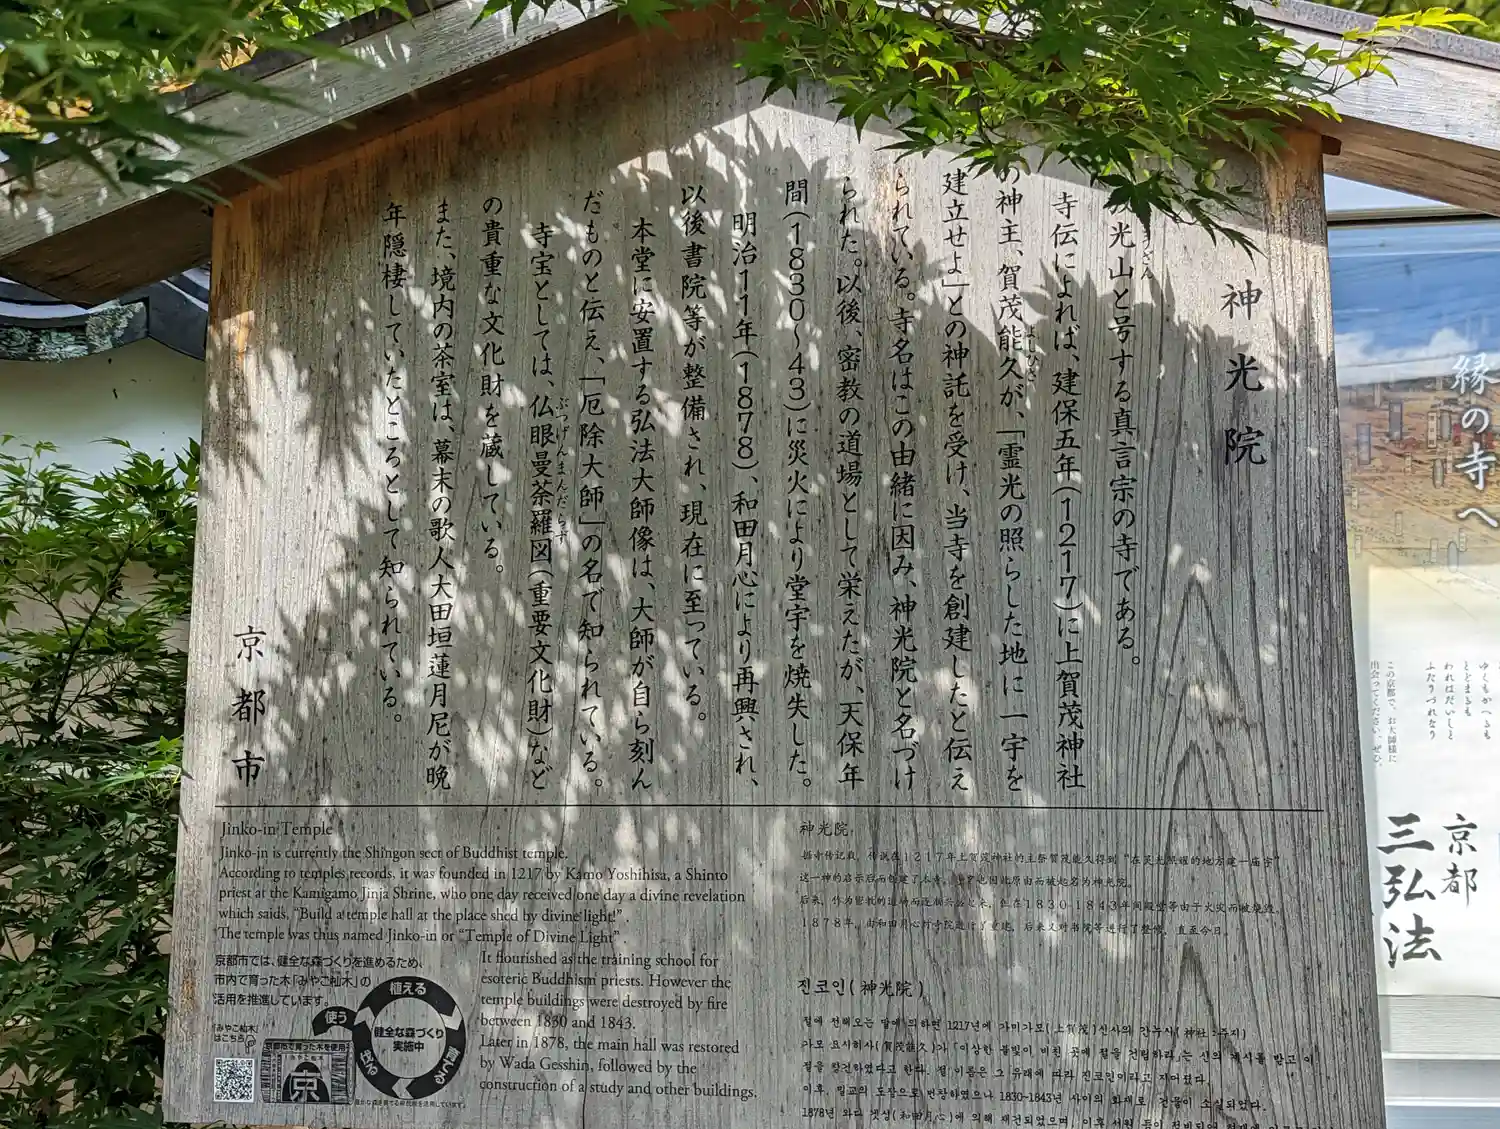 神光院
光山と号する真言宗の寺である。
寺伝によれば、建保五年(1217)に上賀茂神社
の神主、賀茂能久が、「霊光の照らした地に一宇を
よしひさ
建立せよ」との神託を受け、当寺を創建したと伝え
られている。寺名はこの由緒に因み、神光院と名づけ
られた。以後、密教の道場として栄えたが、天保年
間(1830〜43)に災火により堂宇を焼失した。
明治11年(1878)、和田月心により再興され、
以後書院等が整備され、現在に至っている。
本堂に安置する弘法大師像は、大師が自ら刻ん
だものと伝え、「厄除大師」の名で知られている。
寺宝としては、仏眼曼荼羅図(重要文化財)など
ぶつげんまんだらず
の貴重な文化財を蔵している。
また、境内の茶室は、幕末の歌人大田垣蓮月尼が晩
年隠棲していたところとして知られている。
京都市
Jinko-in Temple
Jinko-in is currently the Shingon sect of Buddhist temple.
According to temples records, it was founded in 1217 by Kamo Yoshihisa, a Shinto
priest at the Kamigamo Jinja Shrine, who one day received one day a divine revelation
which saids, "Build a temple hall at the place shed by divine light!" .
The temple was thus named Jinko-in or "Temple of Divine Light" .
It flourished as the training school for
esoteric Buddhism priests. However the
temple buildings were destroyed by fire
between 1830 and 1843.
Later in 1878, the main hall was restored
by Wada Gesshin, followed by the
construction of a study and other buildings.
京都市では、健全な森づくりを進めるため、
市内で育った木「みやこ杣木」の
活用を推進しています。
「みやこ杣木」
はこちら
植える
育てる
伐る
使う
健全な森づくり
実施中
京都市で育った木を使用
みやこ杣木
京
神光院
1217年上賀茂神社的
这一神的启示后而创建了本寺。
1830-1843年间殿堂等由于火灾而被烧毁。
1878年，由和田月心
진코인(神光院)
절에 전해오는 말에 의하면 1217년에 가미가모(上賀茂)신사의 간누시(神社:주지)
가모 요시히사(賀茂能久)가 「이상한 불빛이 비친 곳에 절을 건립하라」는 신의 계시를 받고 이
절을 창건하였다고 한다. 절 이름은 그 유래에 따라 진코인이라고 지어졌다.
이후, 밀교의 도장으로 번창하였으나 1830~1843년 사이의 화재로 건물이 소실되었다.
1878년 와다 겟싱(和田月心)에 의해 재건되었으며, 이후 서원 등이 정비되어
縁の寺へ
ゆくもかへるも
とどまるも
われはだいしと
ふたりづれなり
この京都で、お大師様に
出会ってください、ぜひ。
京都
三弘法